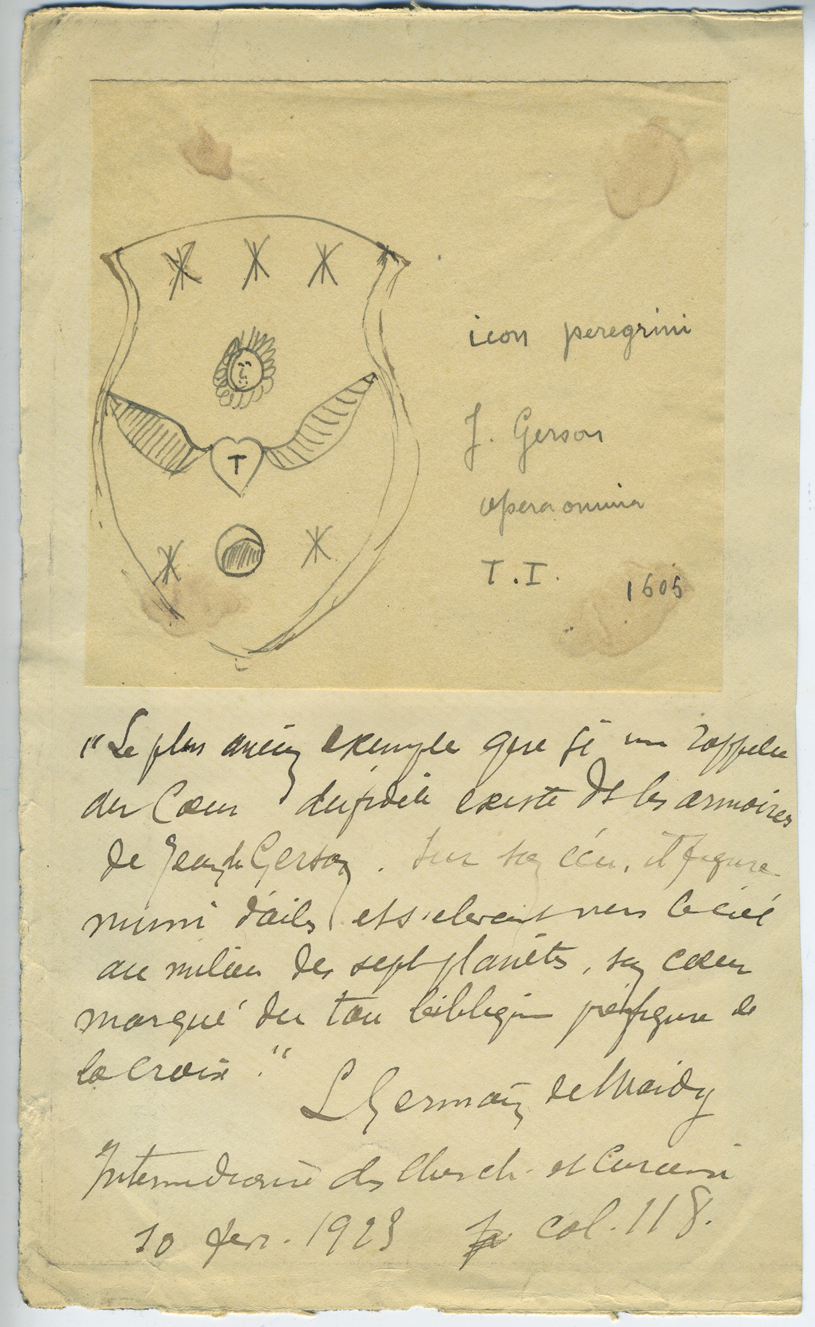 T
icon peregrini
J. Gerson
opera omnia
T. I. 1605
"Le plus ancien exemple que je me rappelle
du Cœur existe ds les armoiries
de Jean de Gerson. Sur son écu, il figure
muni d'ailes et s'élevant vers le ciel
au milieu des sept planètes, son cœur
marqué du tau biblique préfigure de
la croix."
L Germain de Maidy
Intermédiaire des Cherch. et Curieux
10 fev. 1923 col. 118.